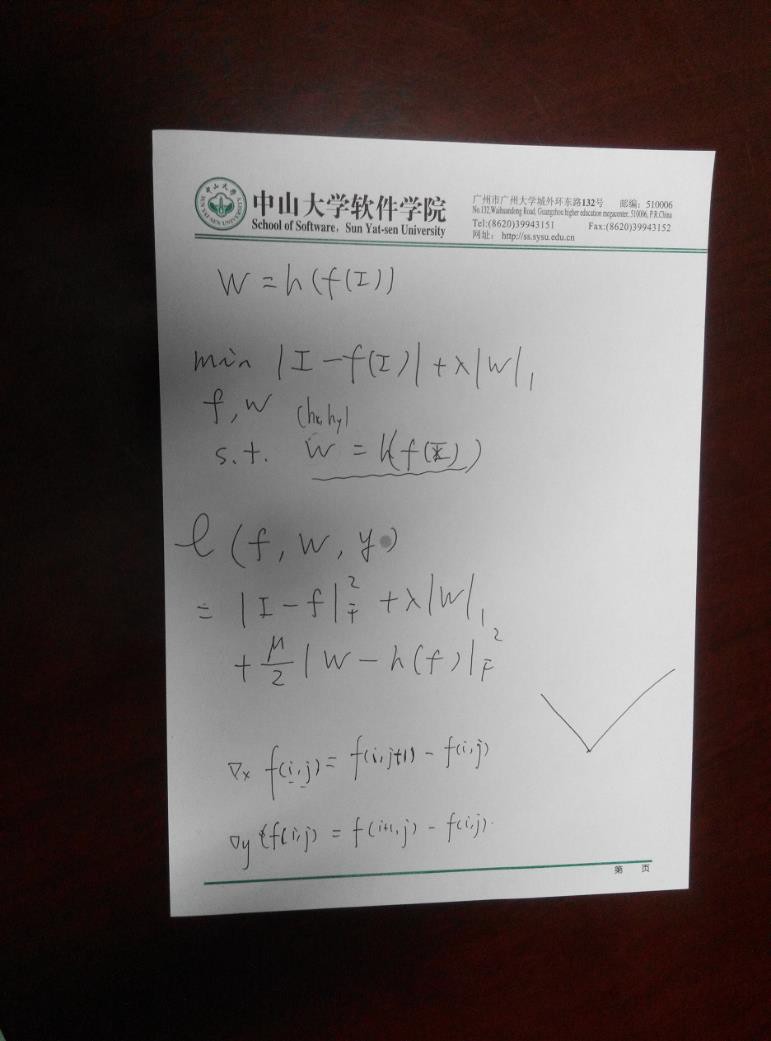 中山大学
SUN YAT-SEN UNIVERSITY
中山大学软件学院
School of Software, Sun Yat-sen University
广州市广州大学城外环东路132号 邮编：510006
No.132,Waihuandong Road, Guangzhou higher education megacenter, 510006, P.R.China
Tel:(8620)39943151 Fax:(8620)39943152
网址： http://ss.sysu.edu.cn
W = h(f(I))
min |I - f(I)| + λ|W|₁
f, w (hx, hy)
s.t. W = h(f(I))
ℓ(f, W, y)
= |I - f|²_F + λ|W|₁
+ μ/2 |W - h(f)|²_F
∇x f(i,j) = f(i,j+1) - f(i,j)
∇y f(i,j) = f(i+1,j) - f(i,j)
第 页